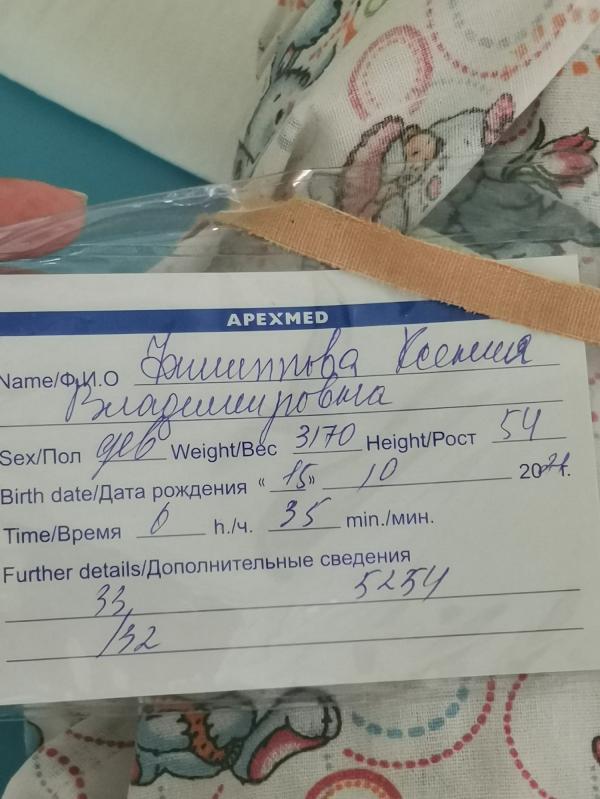 APEXMED
Name/Ф.И.О Филиппова Ксения
Владимировна
Sex/Пол дев Weight/Вес 3170 Height/Рост 54
Birth date/Дата рождения «15» 10 2021г.
Time/Время 6 h./ч. 35 min./мин.
Further details/Дополнительные сведения
33 5254
/32